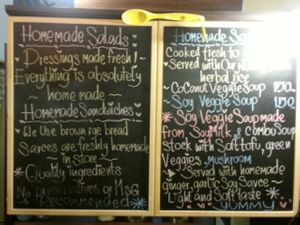 Homemade Salads
Dressings made fresh!
Everything is absolutely
home made
Homemade Sandwiches
We use brown rye bread
Sauces are freshly homemade
in store
Quality ingredients
No preservatives or MSG
Recommended
Homemade Soup
Cooked fresh to
Served with Our
herbal rice
Coconut Veggie Soup
Soy Veggie Soup
Soy Veggie Soup made
from Soy Milk & combu Soup
Stock with Soft tofu, green
Veggies, mushroom
Served with homemade
ginger, garlic Soy Sauce
Light and Soft taste
YUMMY